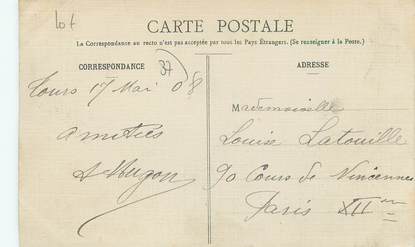 Lot
CARTE POSTALE
La Correspondance au recto n'est pas acceptée par tous les Pays Étrangers. (Se renseigner à la Poste.)
CORRESPONDANCE
37
ADRESSE
Tours 17 Mai 08
Amitiés
A Hugon
Mademoiselle
Louise Latouille
90 Cours de Vincennes
Paris XII me